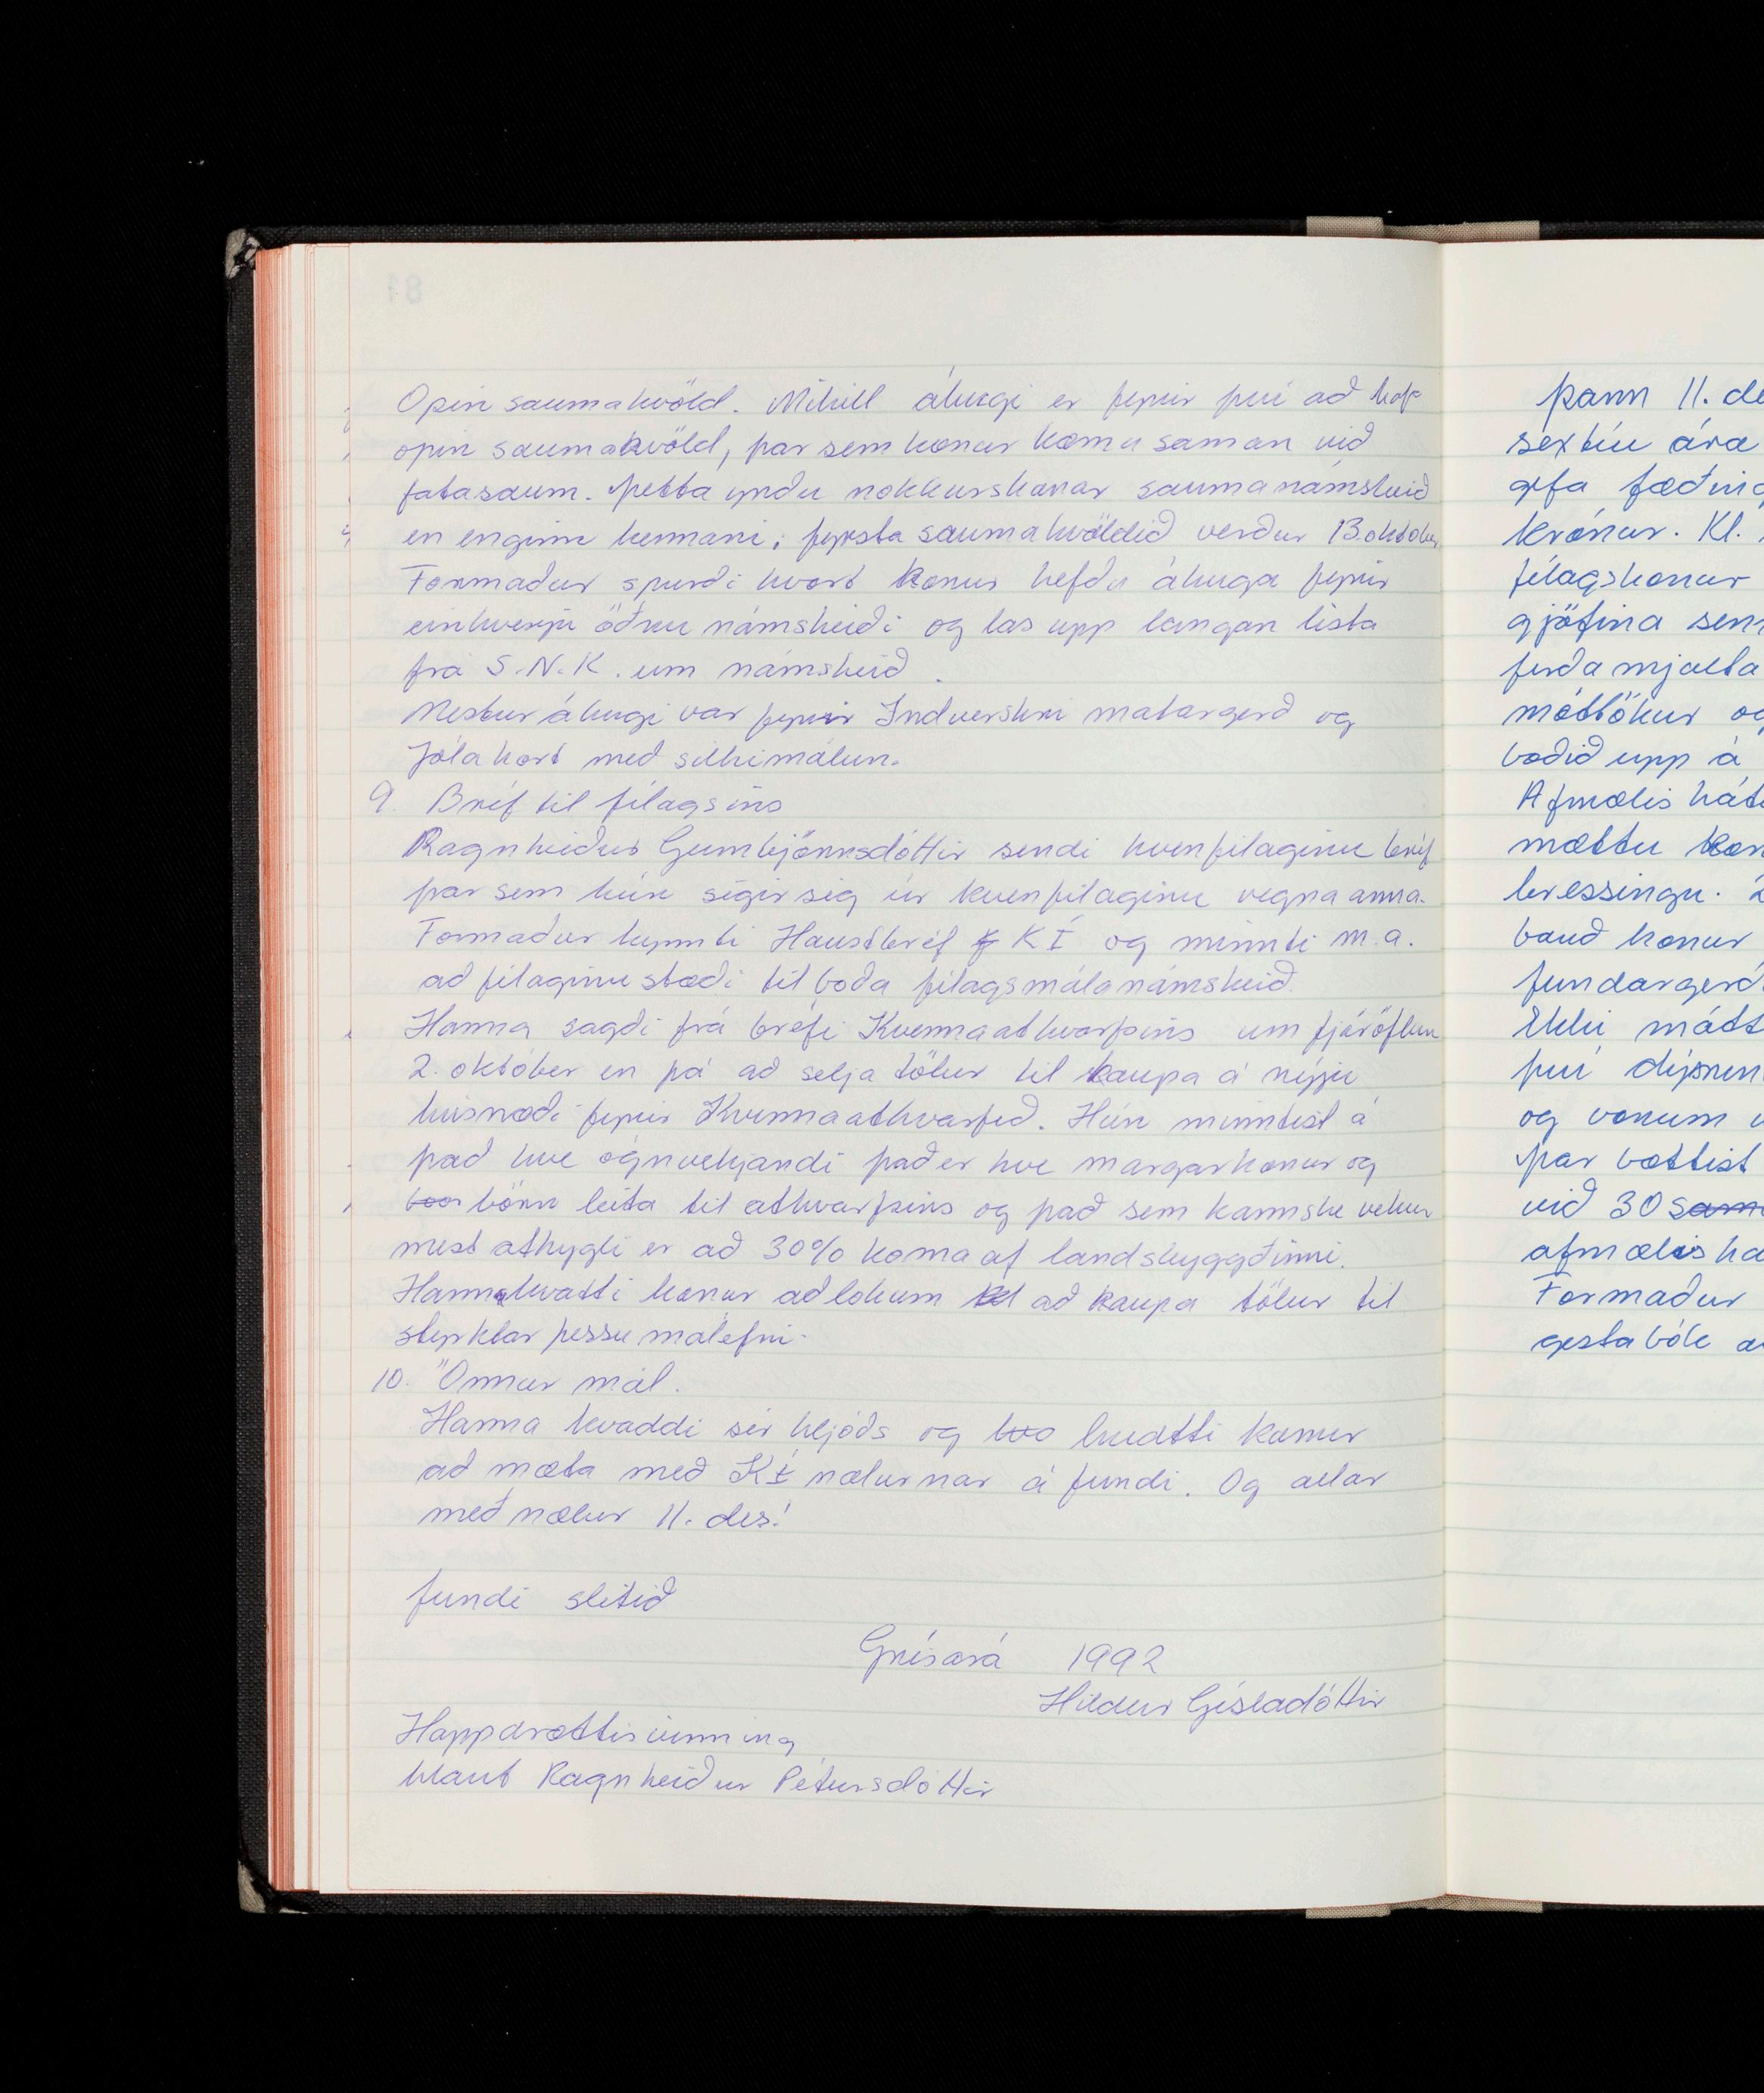 Opin saumakvöld. Mikill áhugi er fyrir því að hafa
opin saumakvöld, þar sem konur koma saman við
fatasaum. Þetta yrðu nokkurskonar saumanámskeið
en enginn kennari; fyrsta saumakvöldið verður 13. október
Formaður spurði hvort konur hefðu áhuga fyrir
einhverju öðru námskeiði og las upp langan lista
frá S.N.K. um námskeið.
Mestur áhugi var fyrir Indverskri matargerð og
Jólakort með silkimálun.
9. Bréf til félagsins
Ragnheiður Gunnbjörnsdóttir sendi kvenfélaginu bréf
þar sem hún segir sig úr kvenfélaginu vegna anna.
Formaður kynnti Haustbréf KÍ og minnti m.a.
að félaginu stæði til boða félagsmálanámskeið.
Hanna sagði frá bréfi Kvennaathvarfsins um fjáröflun
2. október en þá að selja tölur til kaupa á nýju
húsnæði fyrir Kvennaathvarfið. Hún minntist á
það hve ógnvekjandi það er hve margar konur og
börn leita til athvarfsins og það sem kannske vekur
mest athygli er að 30% koma af landsbyggðinni.
Hanna hvatti konur að lokum að kaupa tölur til
styrktar þessu málefni.
10. Önnur mál.
Hanna kvaddi sér hljóðs og hvatti konur
að mæta með KÍ nælurnar á fundi. Og allar
með nælur 11. des!
fundi slitið
Grísará 1992
Hildur Gísladóttir
Happdrættisvinning
hlaut Ragnheiður Pétursdóttir
81
Þann 11. de
sextíu ára
gefa fæðing
krónur. Kl.
félagskonur
gjöfina sem
ferðamjalta
móttökur og
boðið upp á
Afmælis hát
mættu kon
hressingu. 2
bauð konur
fundargerð
Ekki mátt
því dýsmen
og vonum
þar bættist
við 30 sam
afmælisha
Formaður
gestabók a